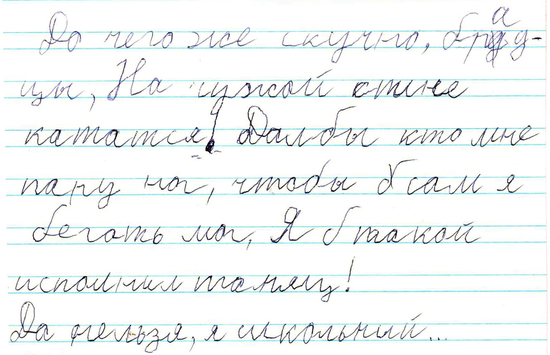 До чего же скучно,
цы, На чужой спине
кататся! Дал бы кто мне
пару ног, чтобы б сам я
бегать мог, Я б такой
исполнил таняц!
Да нельзя, я школьний...